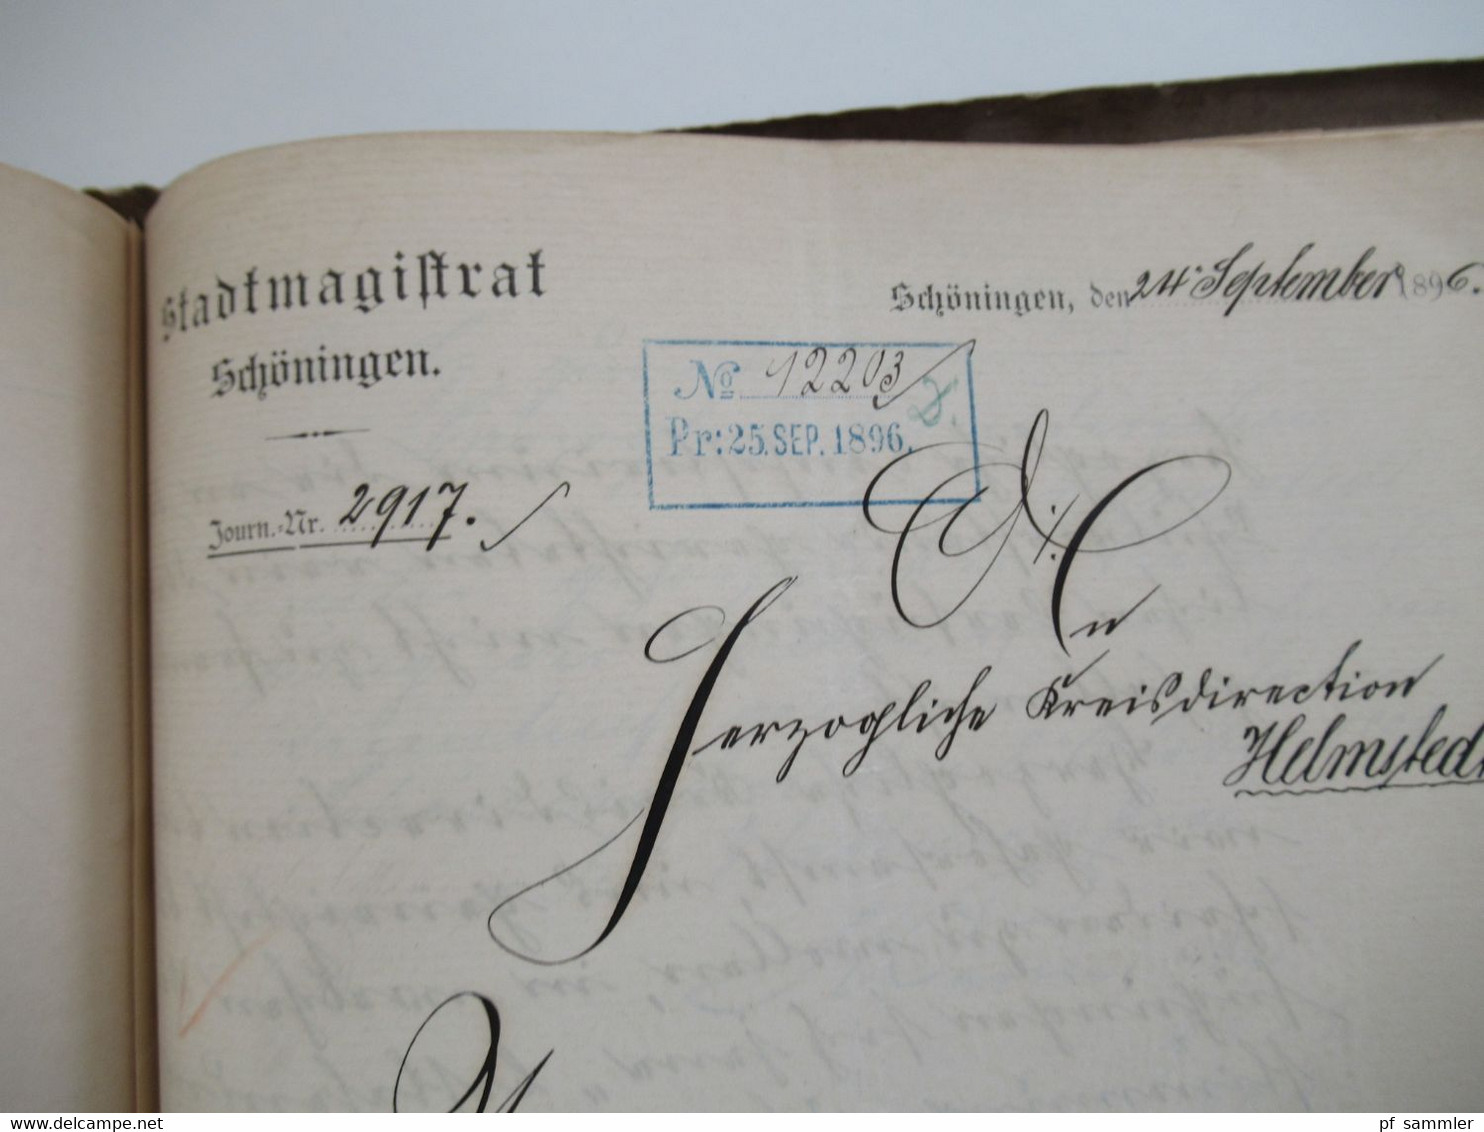 Stadtmagistrat
Schöningen.
Schöningen, den 24. September 1896.
No 12203
Pr: 25. SEP. 1896.
Journ.-Nr. 2917.
Herzogliche Kreisdirection
Helmsted
pf_sammler